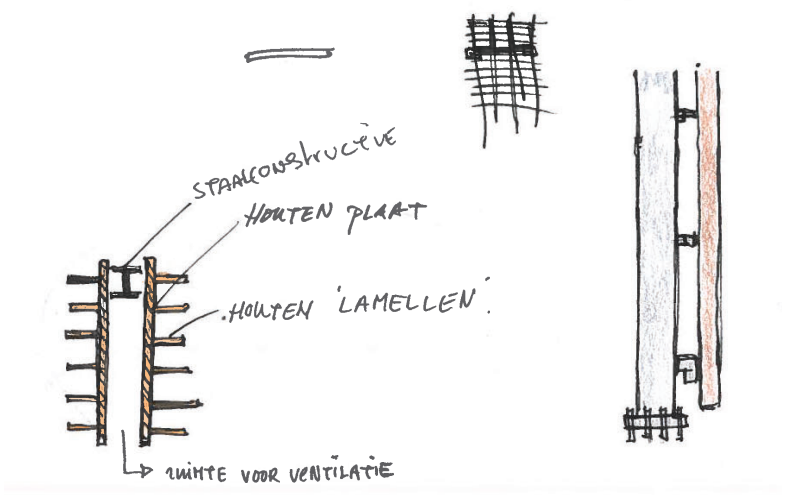 STAALCONSTRUCTIE
HOUTEN PLAAT
HOUTEN 'LAMELLEN'.
RUIMTE VOOR VENTILATIE